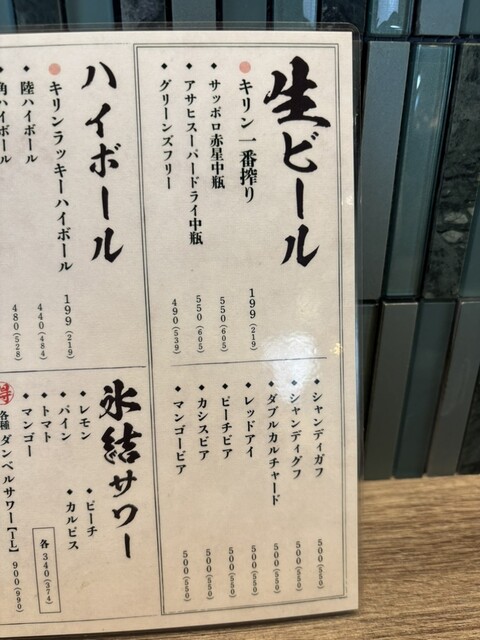 生ビール
●キリン一番搾り 199(219)
◆サッポロ赤星中瓶 550(605)
◆アサヒスーパードライ中瓶 550(605)
◆グリーンズフリー 490(539)
◆シャンディガフ 500(550)
◆シャンディグフ 500(550)
◆ダブルカルチャード 500(550)
◆レッドアイ 500(550)
◆ピーチビア 500(550)
◆カシスビア 500(550)
◆マンゴービア 500(550)
ハイボール
●キリンラッキーハイボール 199(219)
◆陸ハイボール 440(484)
角ハイボール 480(528)
氷結サワー
◆レモン
◆パイン
◆トマト
◆マンゴー
◆ピーチ
◆カルピス
各340(374)
得 各種ダンベルサワー【1L】 900(990)